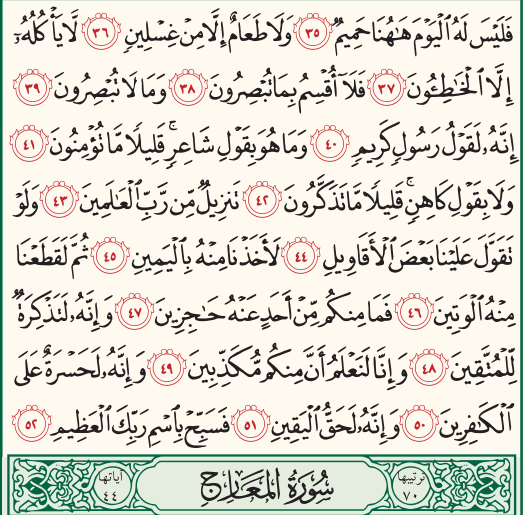 فَلَيْسَ لَهُ ٱلْيَوْمَ هَـٰهُنَا حَمِيمٌ ٣٥ وَلَا طَعَامٌ إِلَّا مِنْ غِسْلِينٍ ٣٦ لَّا يَأْكُلُهُۥٓ
إِلَّا ٱلْخَـٰطِـُٔونَ ٣٧ فَلَآ أُقْسِمُ بِمَا تُبْصِرُونَ ٣٨ وَمَا لَا تُبْصِرُونَ ٣٩
إِنَّهُۥ لَقَوْلُ رَسُولٍ كَرِيمٍ ٤٠ وَمَا هُوَ بِقَوْلِ شَاعِرٍ ۚ قَلِيلًا مَّا تُؤْمِنُونَ ٤١
وَلَا بِقَوْلِ كَاهِنٍ ۚ قَلِيلًا مَّا تَذَكَّرُونَ ٤٢ تَنزِيلٌ مِّن رَّبِّ ٱلْعَـٰلَمِينَ ٤٣ وَلَوْ
تَقَوَّلَ عَلَيْنَا بَعْضَ ٱلْأَقَاوِيلِ ٤٤ لَأَخَذْنَا مِنْهُ بِٱلْيَمِينِ ٤٥ ثُمَّ لَقَطَعْنَا
مِنْهُ ٱلْوَتِينَ ٤٦ فَمَا مِنكُم مِّنْ أَحَدٍ عَنْهُ حَـٰجِزِينَ ٤٧ وَإِنَّهُۥ لَتَذْكِرَةٌ
لِّلْمُتَّقِينَ ٤٨ وَإِنَّا لَنَعْلَمُ أَنَّ مِنكُم مُّكَذِّبِينَ ٤٩ وَإِنَّهُۥ لَحَسْرَةٌ عَلَى
ٱلْكَـٰفِرِينَ ٥٠ وَإِنَّهُۥ لَحَقُّ ٱلْيَقِينِ ٥١ فَسَبِّحْ بِٱسْمِ رَبِّكَ ٱلْعَظِيمِ ٥٢
ترتيبها ٧٠ سُورَةُ المَعَارِجِ آياتها ٤٤